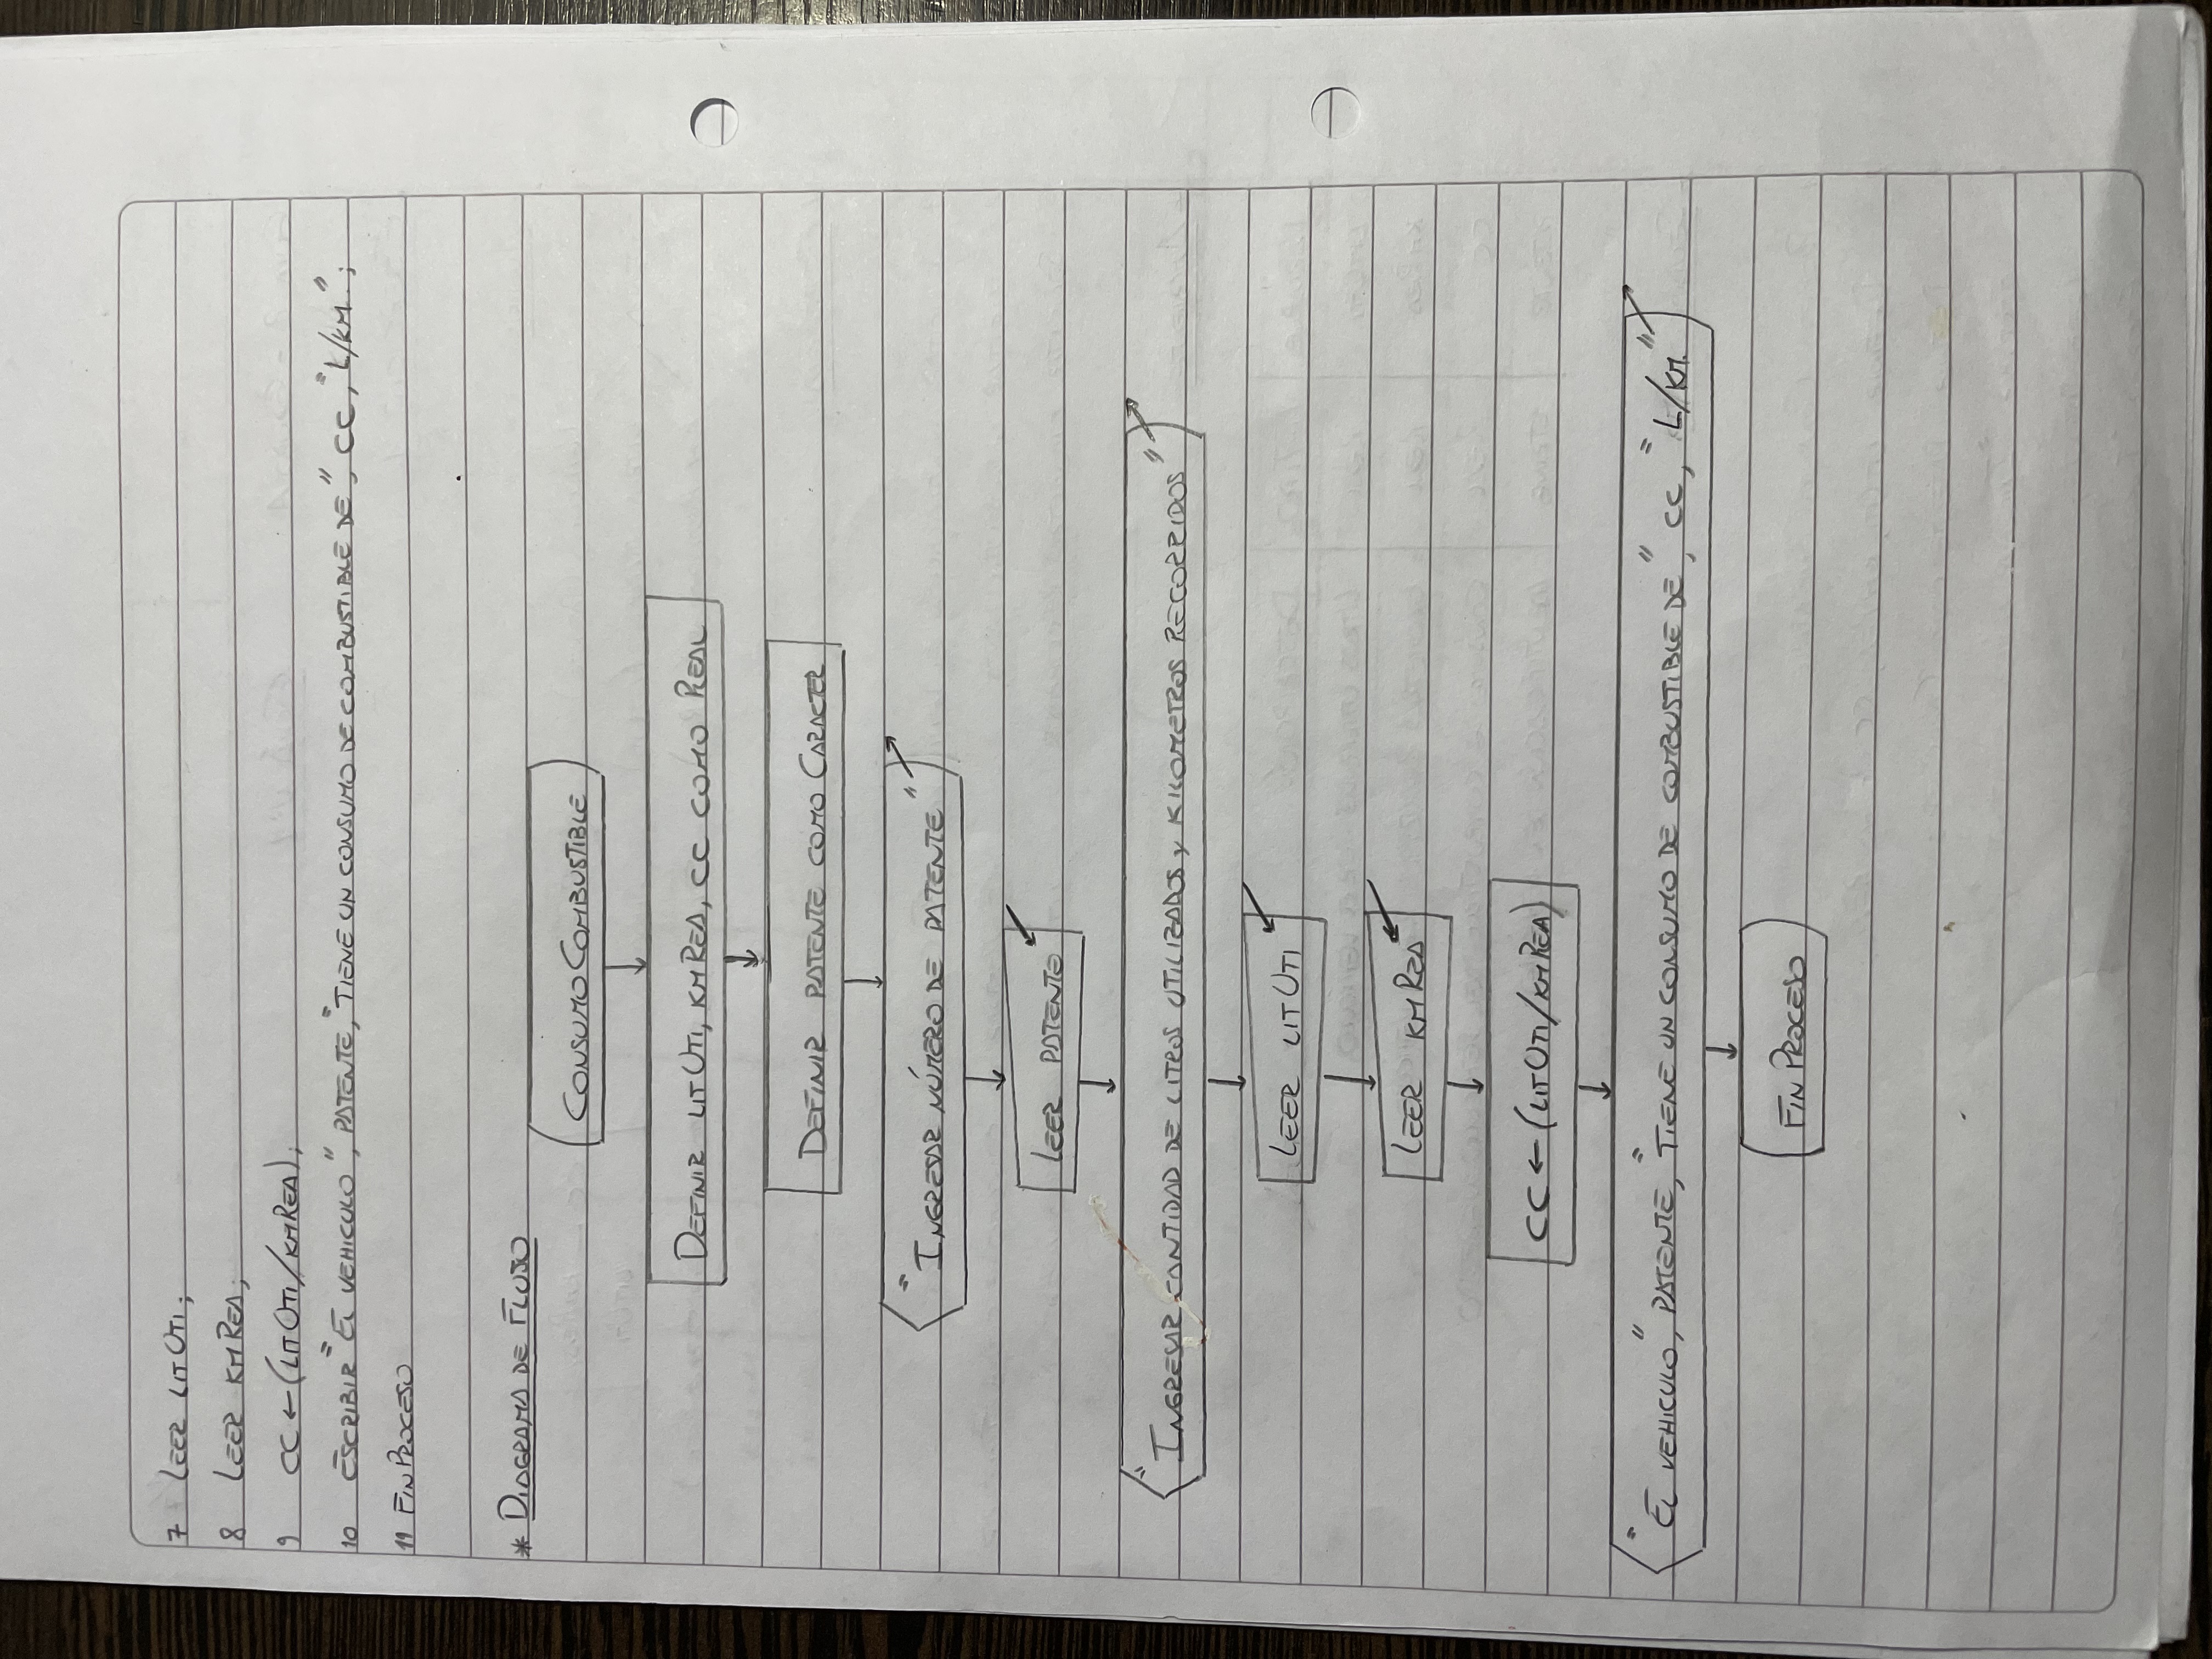 7 LEER LITUTI;
8 LEER KMREA;
9 CC ← (LITUTI/KMREA);
10 ESCRIBIR "EL VEHICULO", PATENTE, "TIENE UN CONSUMO DE COMBUSTIBLE DE", CC, "L/KM.";
11 FINPROCESO
* DIAGRAMA DE FLUJO
CONSUMOCOMBUSTIBLE
DEFINIR LITUTI, KMREA, CC COMO REAL
DEFINIR PATENTE COMO CARACTER
"INGRESAR NÚMERO DE PATENTE"
LEER PATENTE
"INGRESAR CANTIDAD DE LITROS UTILIZADOS y KILOMETROS RECORRIDOS"
LEER LITUTI
LEER KMREA
CC ← (LITUTI/KMREA)
"EL VEHICULO", PATENTE, "TIENE UN CONSUMO DE COMBUSTIBLE DE", CC, "L/KM."
FINPROCESO